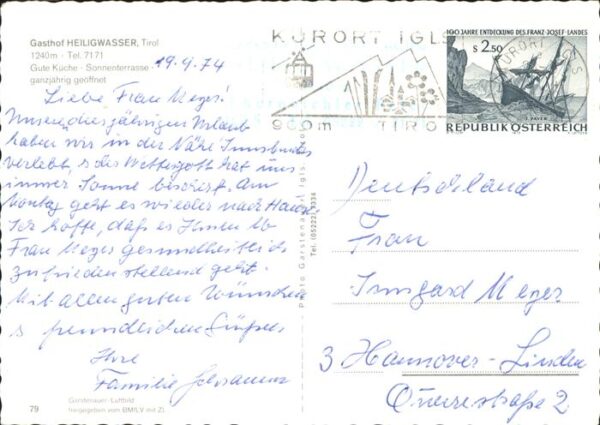 Gasthof HEILIGWASSER, Tirol
1240m · Tel. 7171
Gute Küche · Sonnenterrasse
ganzjährig geöffnet
19.9.74
Liebe Frau Meyer!
Unseren diesjährigen Urlaub
haben wir in der Nähe Innsbrucks
verlebt, der Wettergott hat uns
immer Sonne beschert. Am
Montag geht es wieder nach Hause
Ich hoffe, daß es Ihnen lb
Frau Meyer gesundheitlich
zufriedenstellend geht.
Mit allen guten Wünschen
freundlichen Grüßen
Ihre
Familie
79
Garstenauer-Luftbild
freigegeben vom BMfLV mit Zl.
Tel. (05222) 7334
KURORT IGLS
900m TIROL
100 JAHRE ENTDECKUNG DES FRANZ-JOSEF-LANDES
S 2.50
KURORT IGLS
REPUBLIK ÖSTERREICH
Deutschland
Frau
Irmgard Meyer
3 Hannover-Linden
Querestraße 2